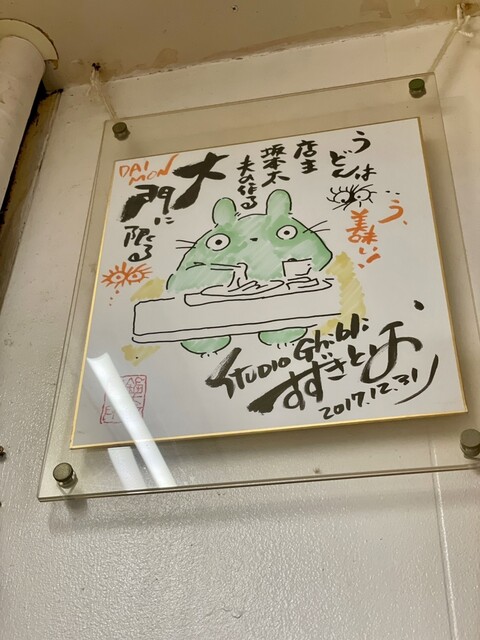 うどんは
う、
美味い!
店主
坂本太
夫の作る
大
門に
限る
DAI
MON
STUDIO Ghibli
すずきとしお
2017.12.31